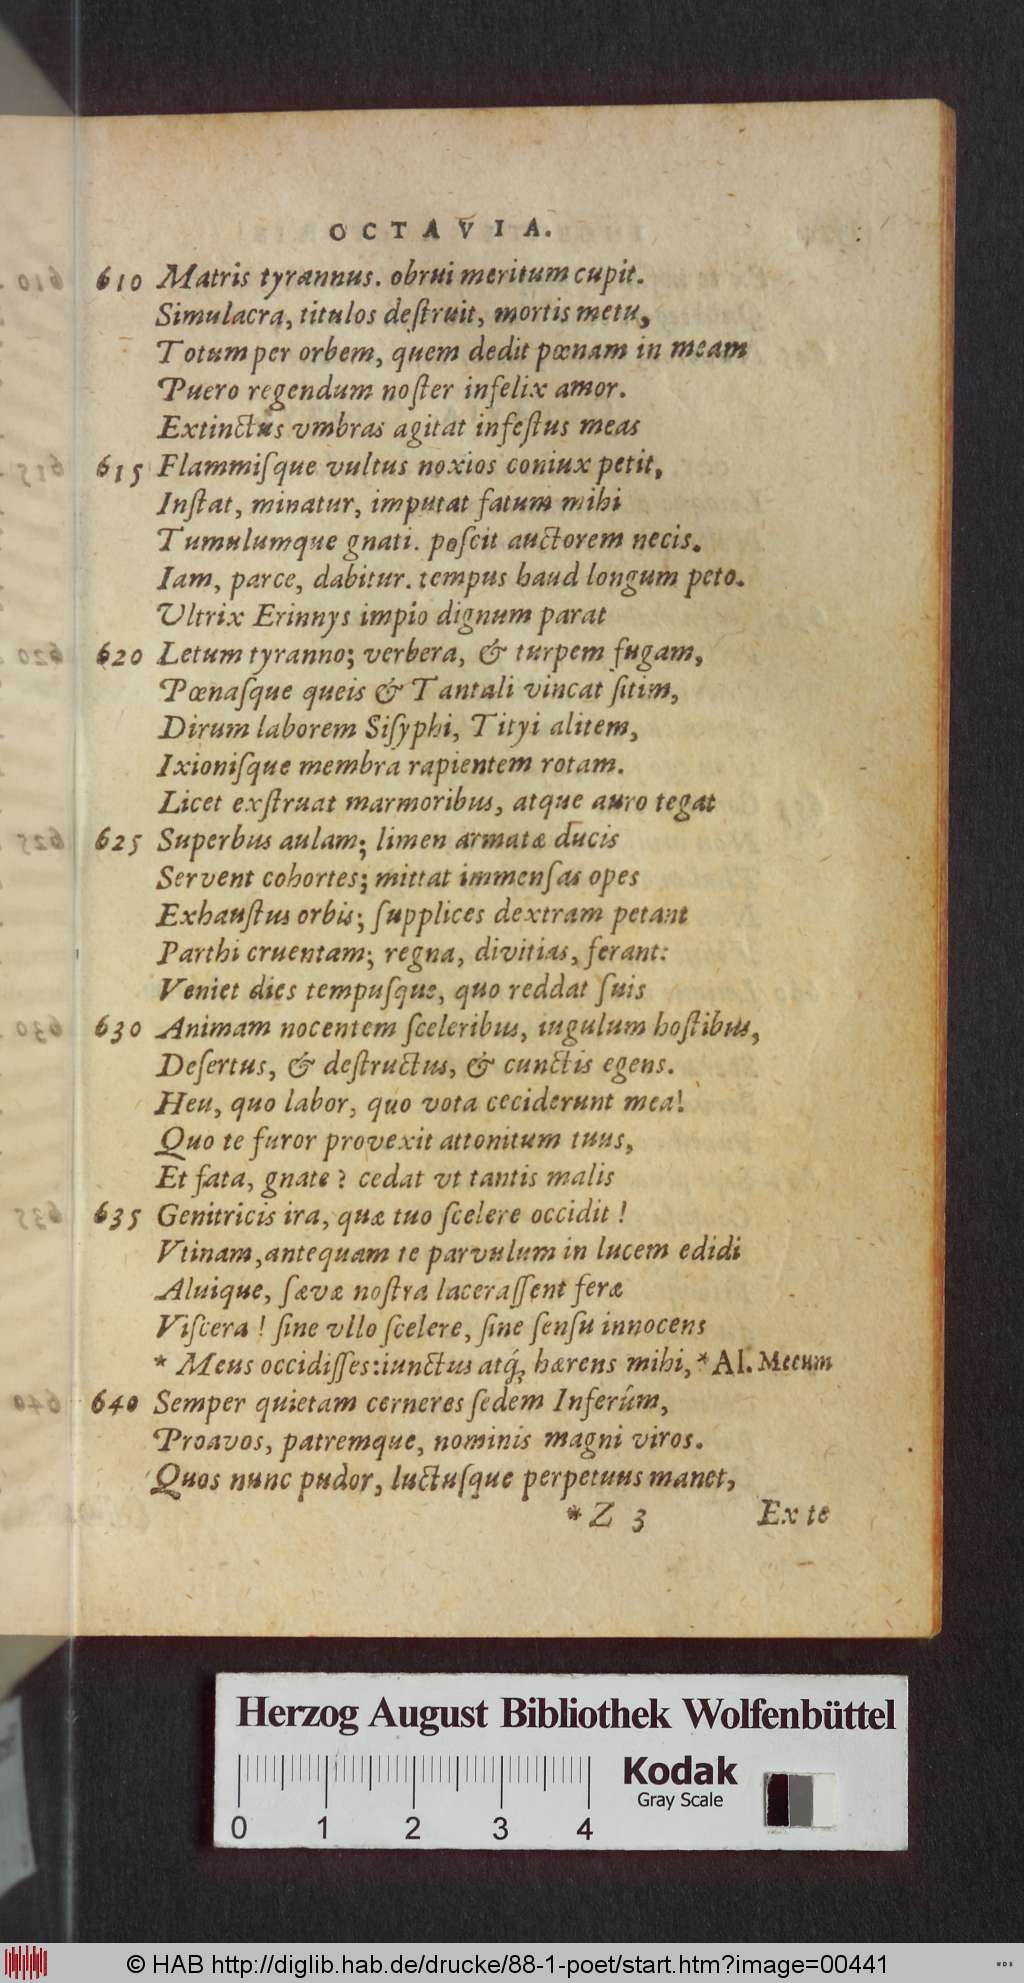 OCTAVIA.
610 Matris tyrannus. obrui meritum cupit.
Simulacra, titulos deſtruit, mortis metu,
Totum per orbem, quem dedit pœnam in meam
Puero regendum noſter infelix amor.
Extinctus vmbras agitat infeſtus meas
615 Flammiſque vultus noxios coniux petit,
Inſtat, minatur, imputat fatum mihi
Tumulumque gnati. poſcit auctorem necis.
Iam, parce, dabitur. tempus haud longum peto.
Ultrix Erinnys impio dignum parat
620 Letum tyranno; verbera, & turpem fugam,
Pœnaſque queis & Tantali vincat ſitim,
Dirum laborem Siſyphi, Tityi alitem,
Ixioniſque membra rapientem rotam.
Licet exſtruat marmoribus, atque auro tegat
625 Superbus aulam; limen armatæ ducis
Servent cohortes; mittat immenſas opes
Exhauſtus orbis; ſupplices dextram petant
Parthi cruentam; regna, divitias, ferant:
Veniet dies tempuſque, quo reddat ſuis
630 Animam nocentem ſceleribus, iugulum hoſtibus,
Deſertus, & deſtructus, & cunctis egens.
Heu, quo labor, quo vota ceciderunt mea!
Quo te furor provexit attonitum tuus,
Et fata, gnate? cedat vt tantis malis
635 Genitricis ira, quæ tuo ſcelere occidit!
Vtinam, antequam te parvulum in lucem edidi
Aluique, ſævæ noſtra laceraſſent feræ
Viſcera! ſine vllo ſcelere, ſine ſenſu innocens
* Meus occidiſſes: iunctus atq́; hærens mihi, * Al. Mecum
640 Semper quietam cerneres ſedem Inferúm,
Proavos, patremque, nominis magni viros.
Quos nunc pudor, luctuſque perpetuus manet,
* Z 3 Ex te
Herzog August Bibliothek Wolfenbüttel
0 1 2 3 4
Kodak
Gray Scale
© HAB http://diglib.hab.de/drucke/88-1-poet/start.htm?image=00441